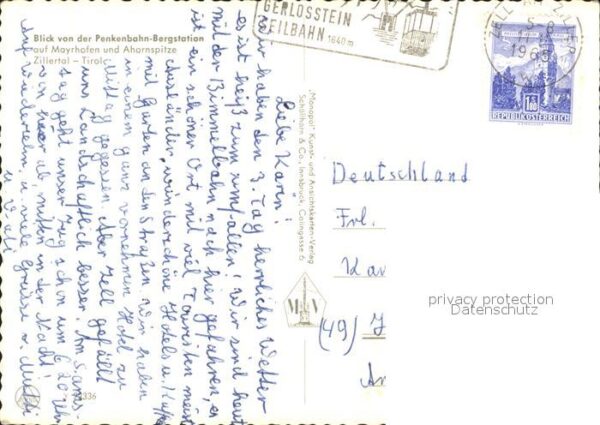 Blick von der Penkenbahn-Bergstation
auf Mayrhofen und Ahornspitze
Zillertal – Tirol
GERLOSSTEIN
SEILBAHN 1640 m
5-8
1963
1.80
REPUBLIK ÖSTERREICH
Liebe Karin!
Wir haben den 3. Tag herrliches Wetter
es ist heiß zum umfallen! Wir sind heute
mit der Bimmelbahn nach hier gefahren, es
ist ein schöner Ort mit viel Touristen meist
Ausländer, wunderschöne Hotels u.
mit Garten an den Straßen wir haben
in einem ganz vornehmen Hotel zu
Mittag gegessen. Aber Zell gefällt
uns landschaftlich besser. Am Sams-
tag geht unser Zug schon um 6 20 Uhr
von hier ab, mitten in der Nacht!
Auf Wiedersehn u. viele Grüsse v. Mutti
u. Vati
"Monopol" Kunst- und Ansichtskarten-Verlag
Schöllhorn & Co., Innsbruck, Colingasse 6
336
Deutschland
Frl.
Kar
(49)
privacy protection
Datenschutz